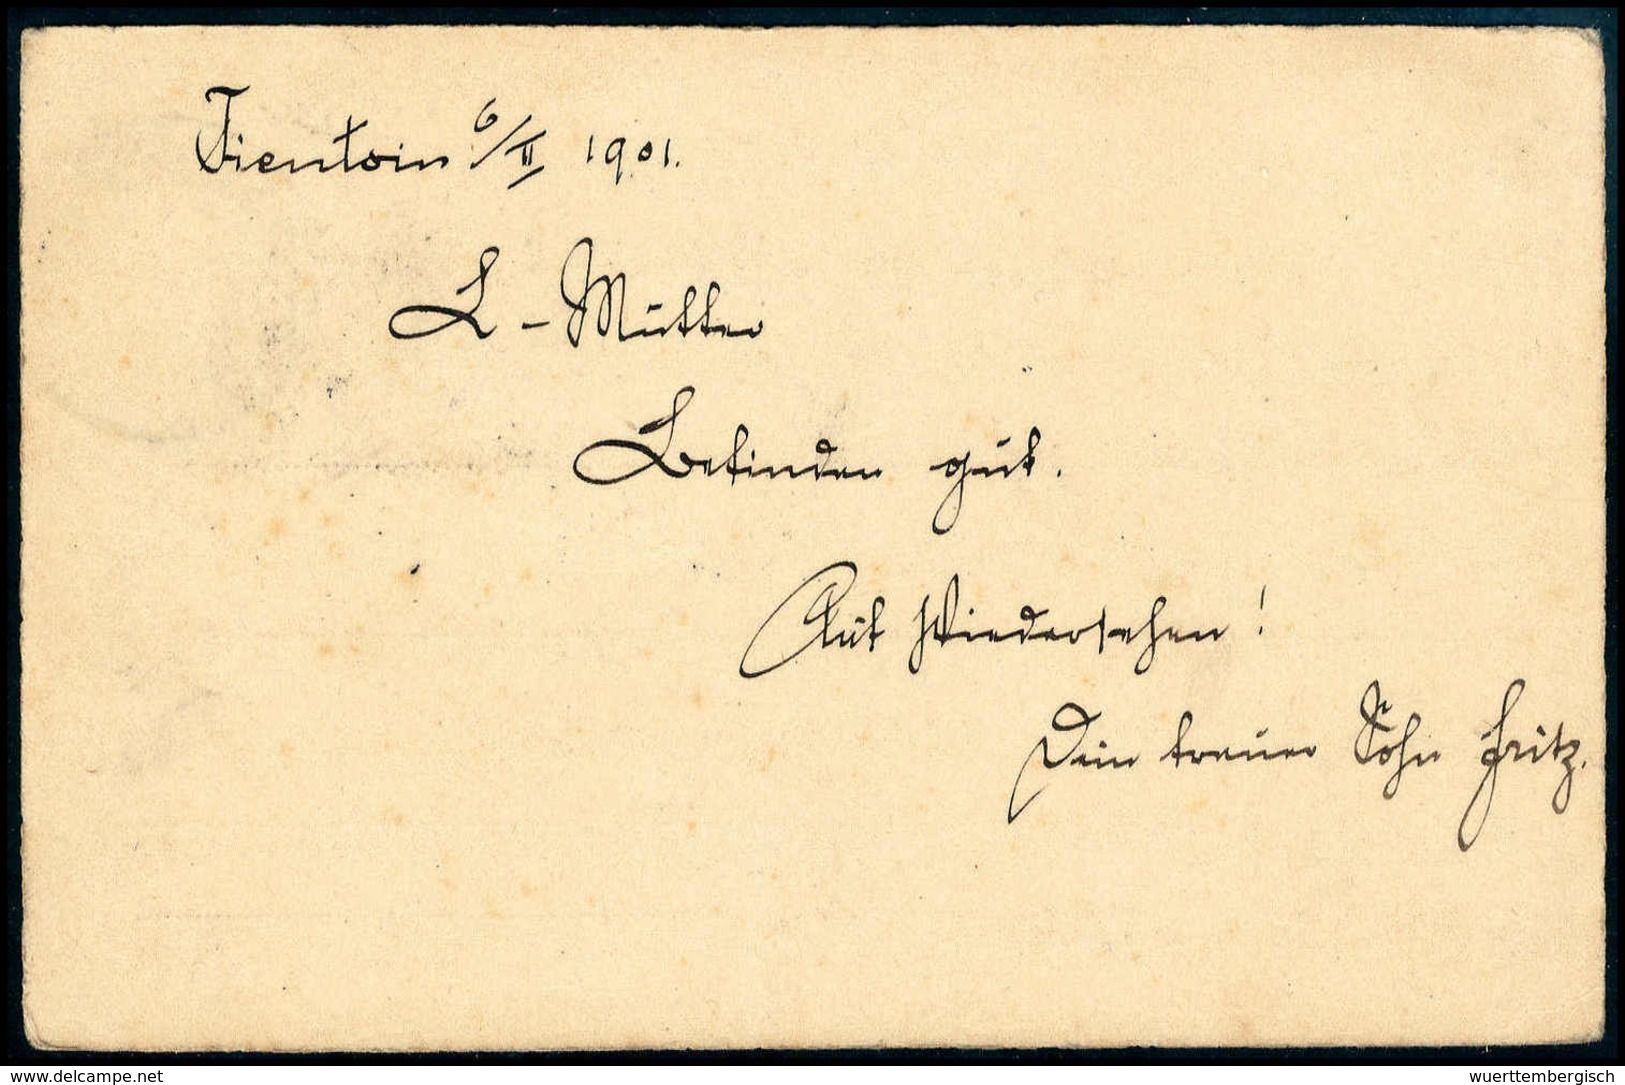 Tientsin 6/II 1901.
L-Mutter
Befinden gut.
Auf Wiedersehen!
Dein treuer Sohn Fritz.
www.delcampe.net
wuerttembergisch